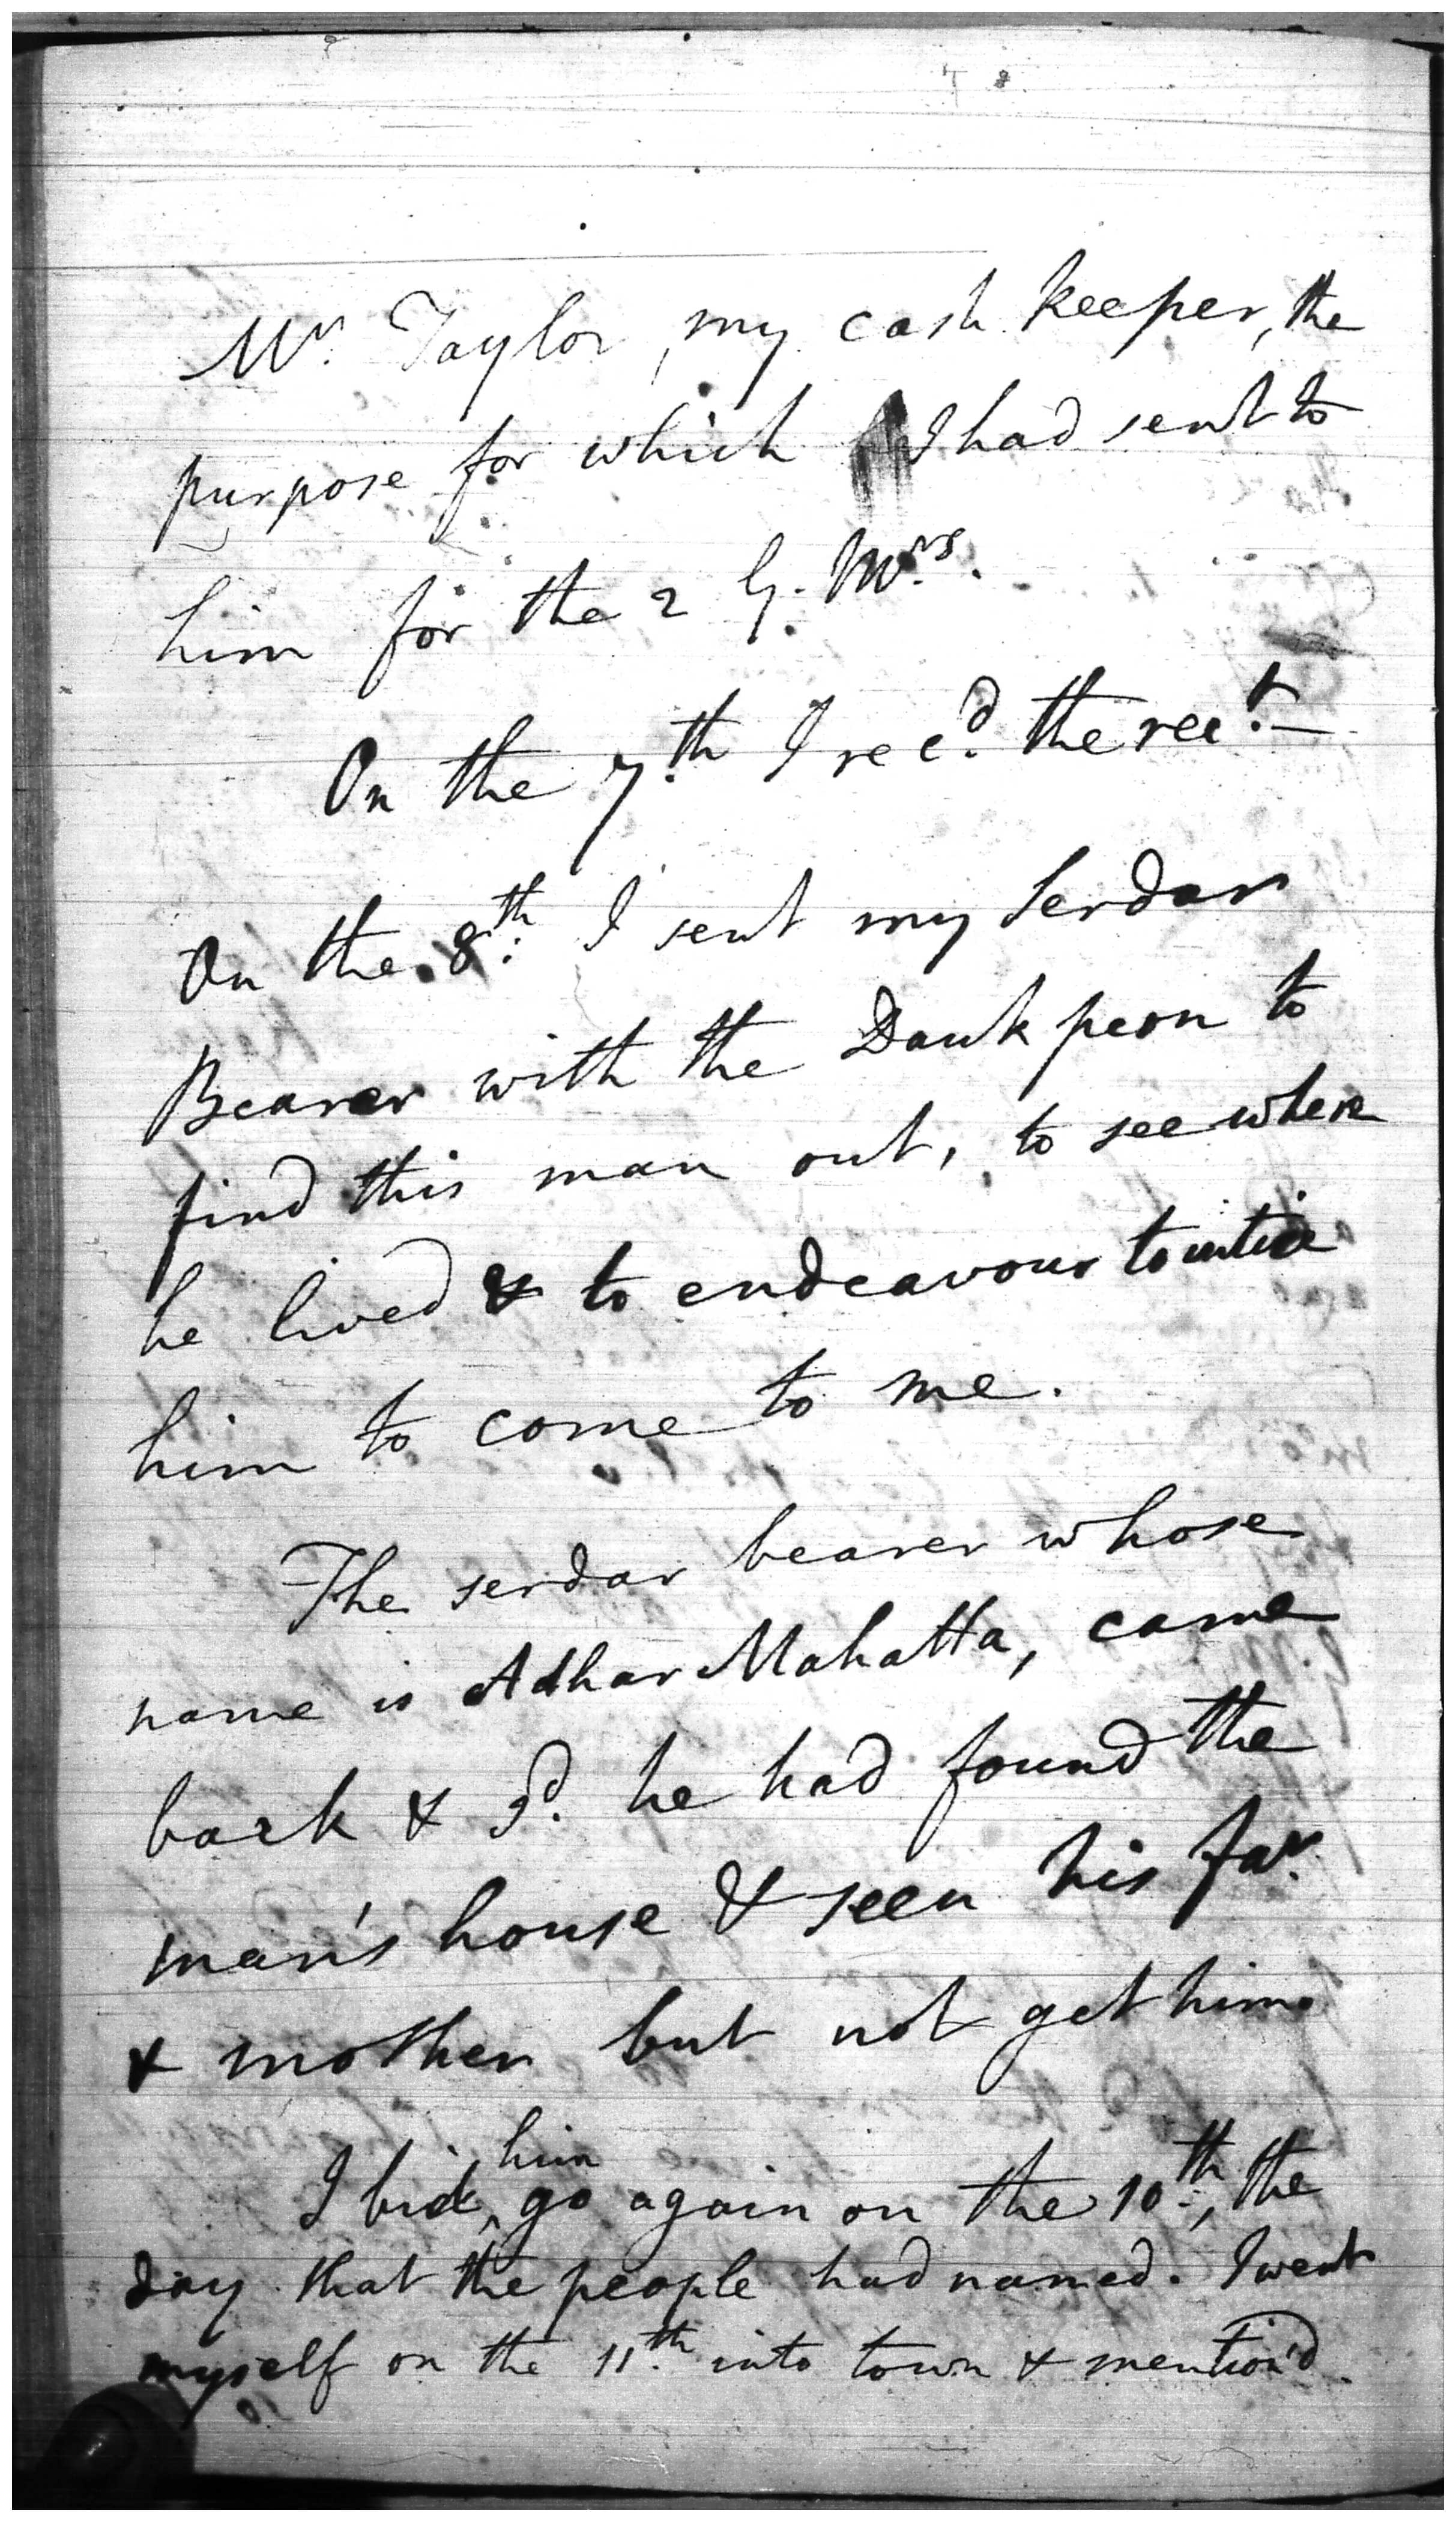 Mr. Taylor, my cash keeper, the
purpose for which I had sent to
him for the 2 G. Mrs.
On the 7.th I rec.d the rec.t—
On the 8th: I sent my Serdar
Bearer with the Dauk peon to
find this man out, to see where
he lived & to endeavour to intice
him to come to me.
The serdar bearer whose
name is Adhar Mahatta, came
back & sd. he had found the
man's house & seen his far.
& mother but not get him.
I bid him go again on the 10th, the
day that the people had named. I went
myself on the 11.th into town & mention'd